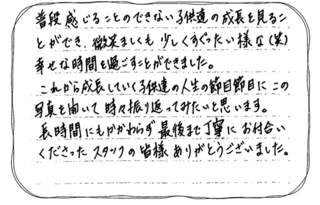 普段感じることのできない子供達の成長を見るこ
とができ、微笑ましくも少しくすぐたい様な(笑)
幸せな時間を過ごすことができました。
これから成長していく子供達の人生の節目節目にこの
写真を開いて時々振り返ってみたいと思います。
長時間にもかかわらず最後まで丁寧にお付合い
くださったスタッフの皆様ありがとうございました。